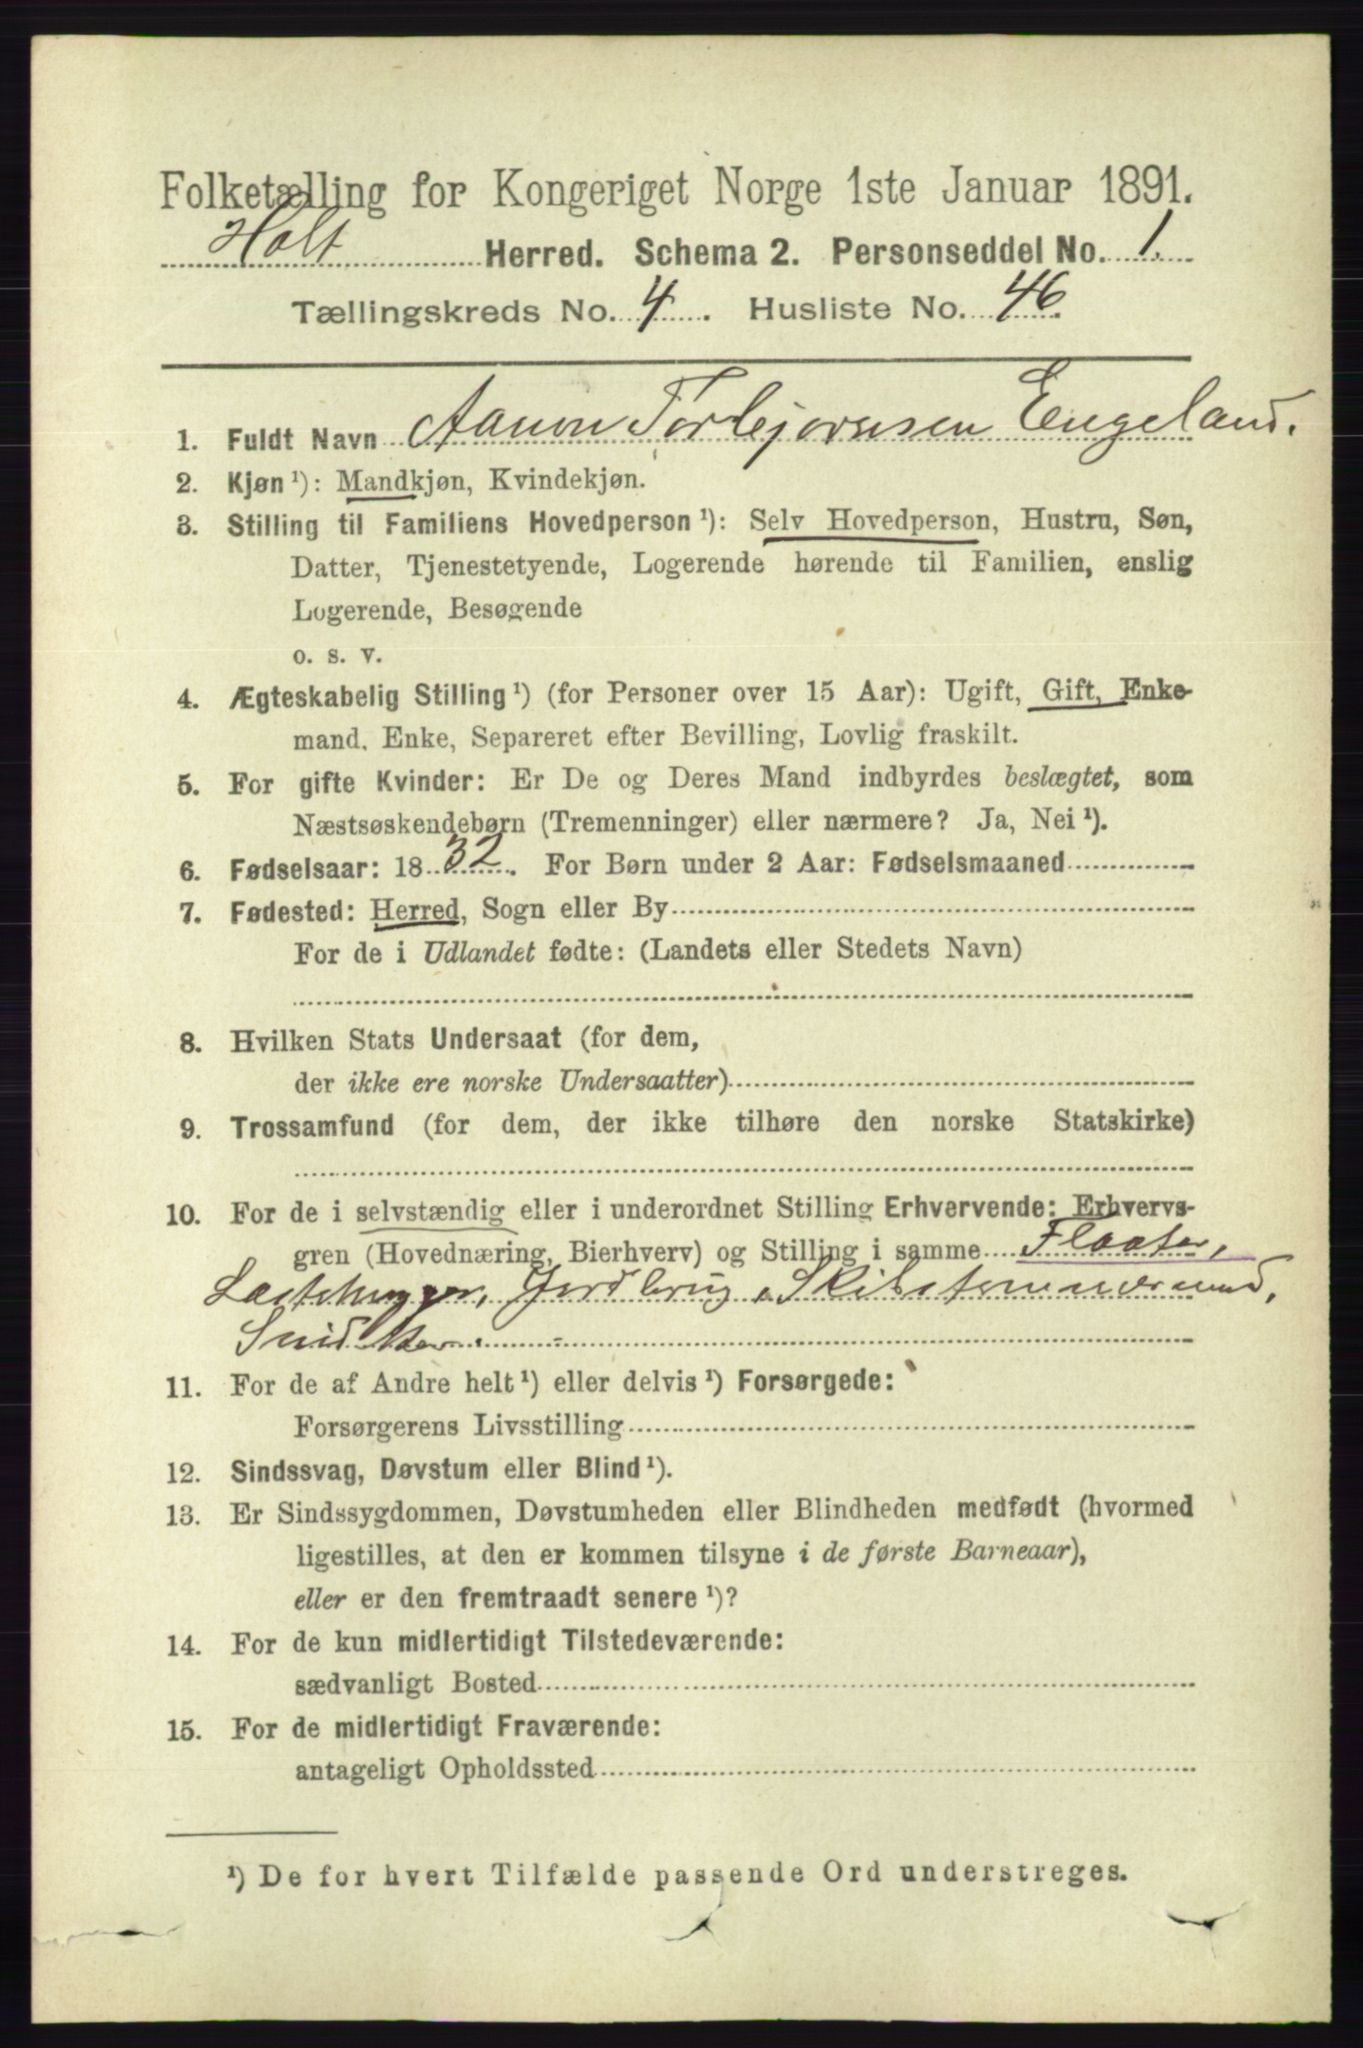 Folketælling for Kongeriget Norge 1ste Januar 1891.
Holt Herred. Schema 2. Personseddel No. 1.
Tællingskreds No. 4. Husliste No. 46.
1. Fuldt Navn Aanon Torbjørnsen Engeland.
2. Kjøn ¹): Mandkjøn, Kvindekjøn.
3. Stilling til Familiens Hovedperson ¹): Selv Hovedperson, Hustru, Søn,
Datter, Tjenestetyende, Logerende hørende til Familien, enslig
Logerende, Besøgende
o. s. v.
4. Ægteskabelig Stilling ¹) (for Personer over 15 Aar): Ugift, Gift, Enke-
mand, Enke, Separeret efter Bevilling, Lovlig fraskilt.
5. For gifte Kvinder: Er De og Deres Mand indbyrdes beslægtet, som
Næstsøskendebørn (Tremenninger) eller nærmere? Ja, Nei ¹).
6. Fødselsaar: 1832. For Børn under 2 Aar: Fødselsmaaned
7. Fødested: Herred, Sogn eller By
For de i Udlandet fødte: (Landets eller Stedets Navn)
8. Hvilken Stats Undersaat (for dem,
der ikke ere norske Undersaatter)
9. Trossamfund (for dem, der ikke tilhøre den norske Statskirke)
10. For de i selvstændig eller i underordnet Stilling Erhvervende: Erhvervs-
gren (Hovednæring, Bierhverv) og Stilling i samme Fløoter,
Jordbrug, Skibstømmermand,
Snidker.
11. For de af Andre helt ¹) eller delvis ¹) Forsørgede:
Forsørgerens Livsstilling
12. Sindssvag, Døvstum eller Blind ¹).
13. Er Sindssygdommen, Døvstumheden eller Blindheden medfødt (hvormed
ligestilles, at den er kommen tilsyne i de første Barneaar),
eller er den fremtraadt senere ¹)?
14. For de kun midlertidigt Tilstedeværende:
sædvanligt Bosted
15. For de midlertidigt Fraværende:
antageligt Opholdssted
¹) De for hvert Tilfælde passende Ord understreges.